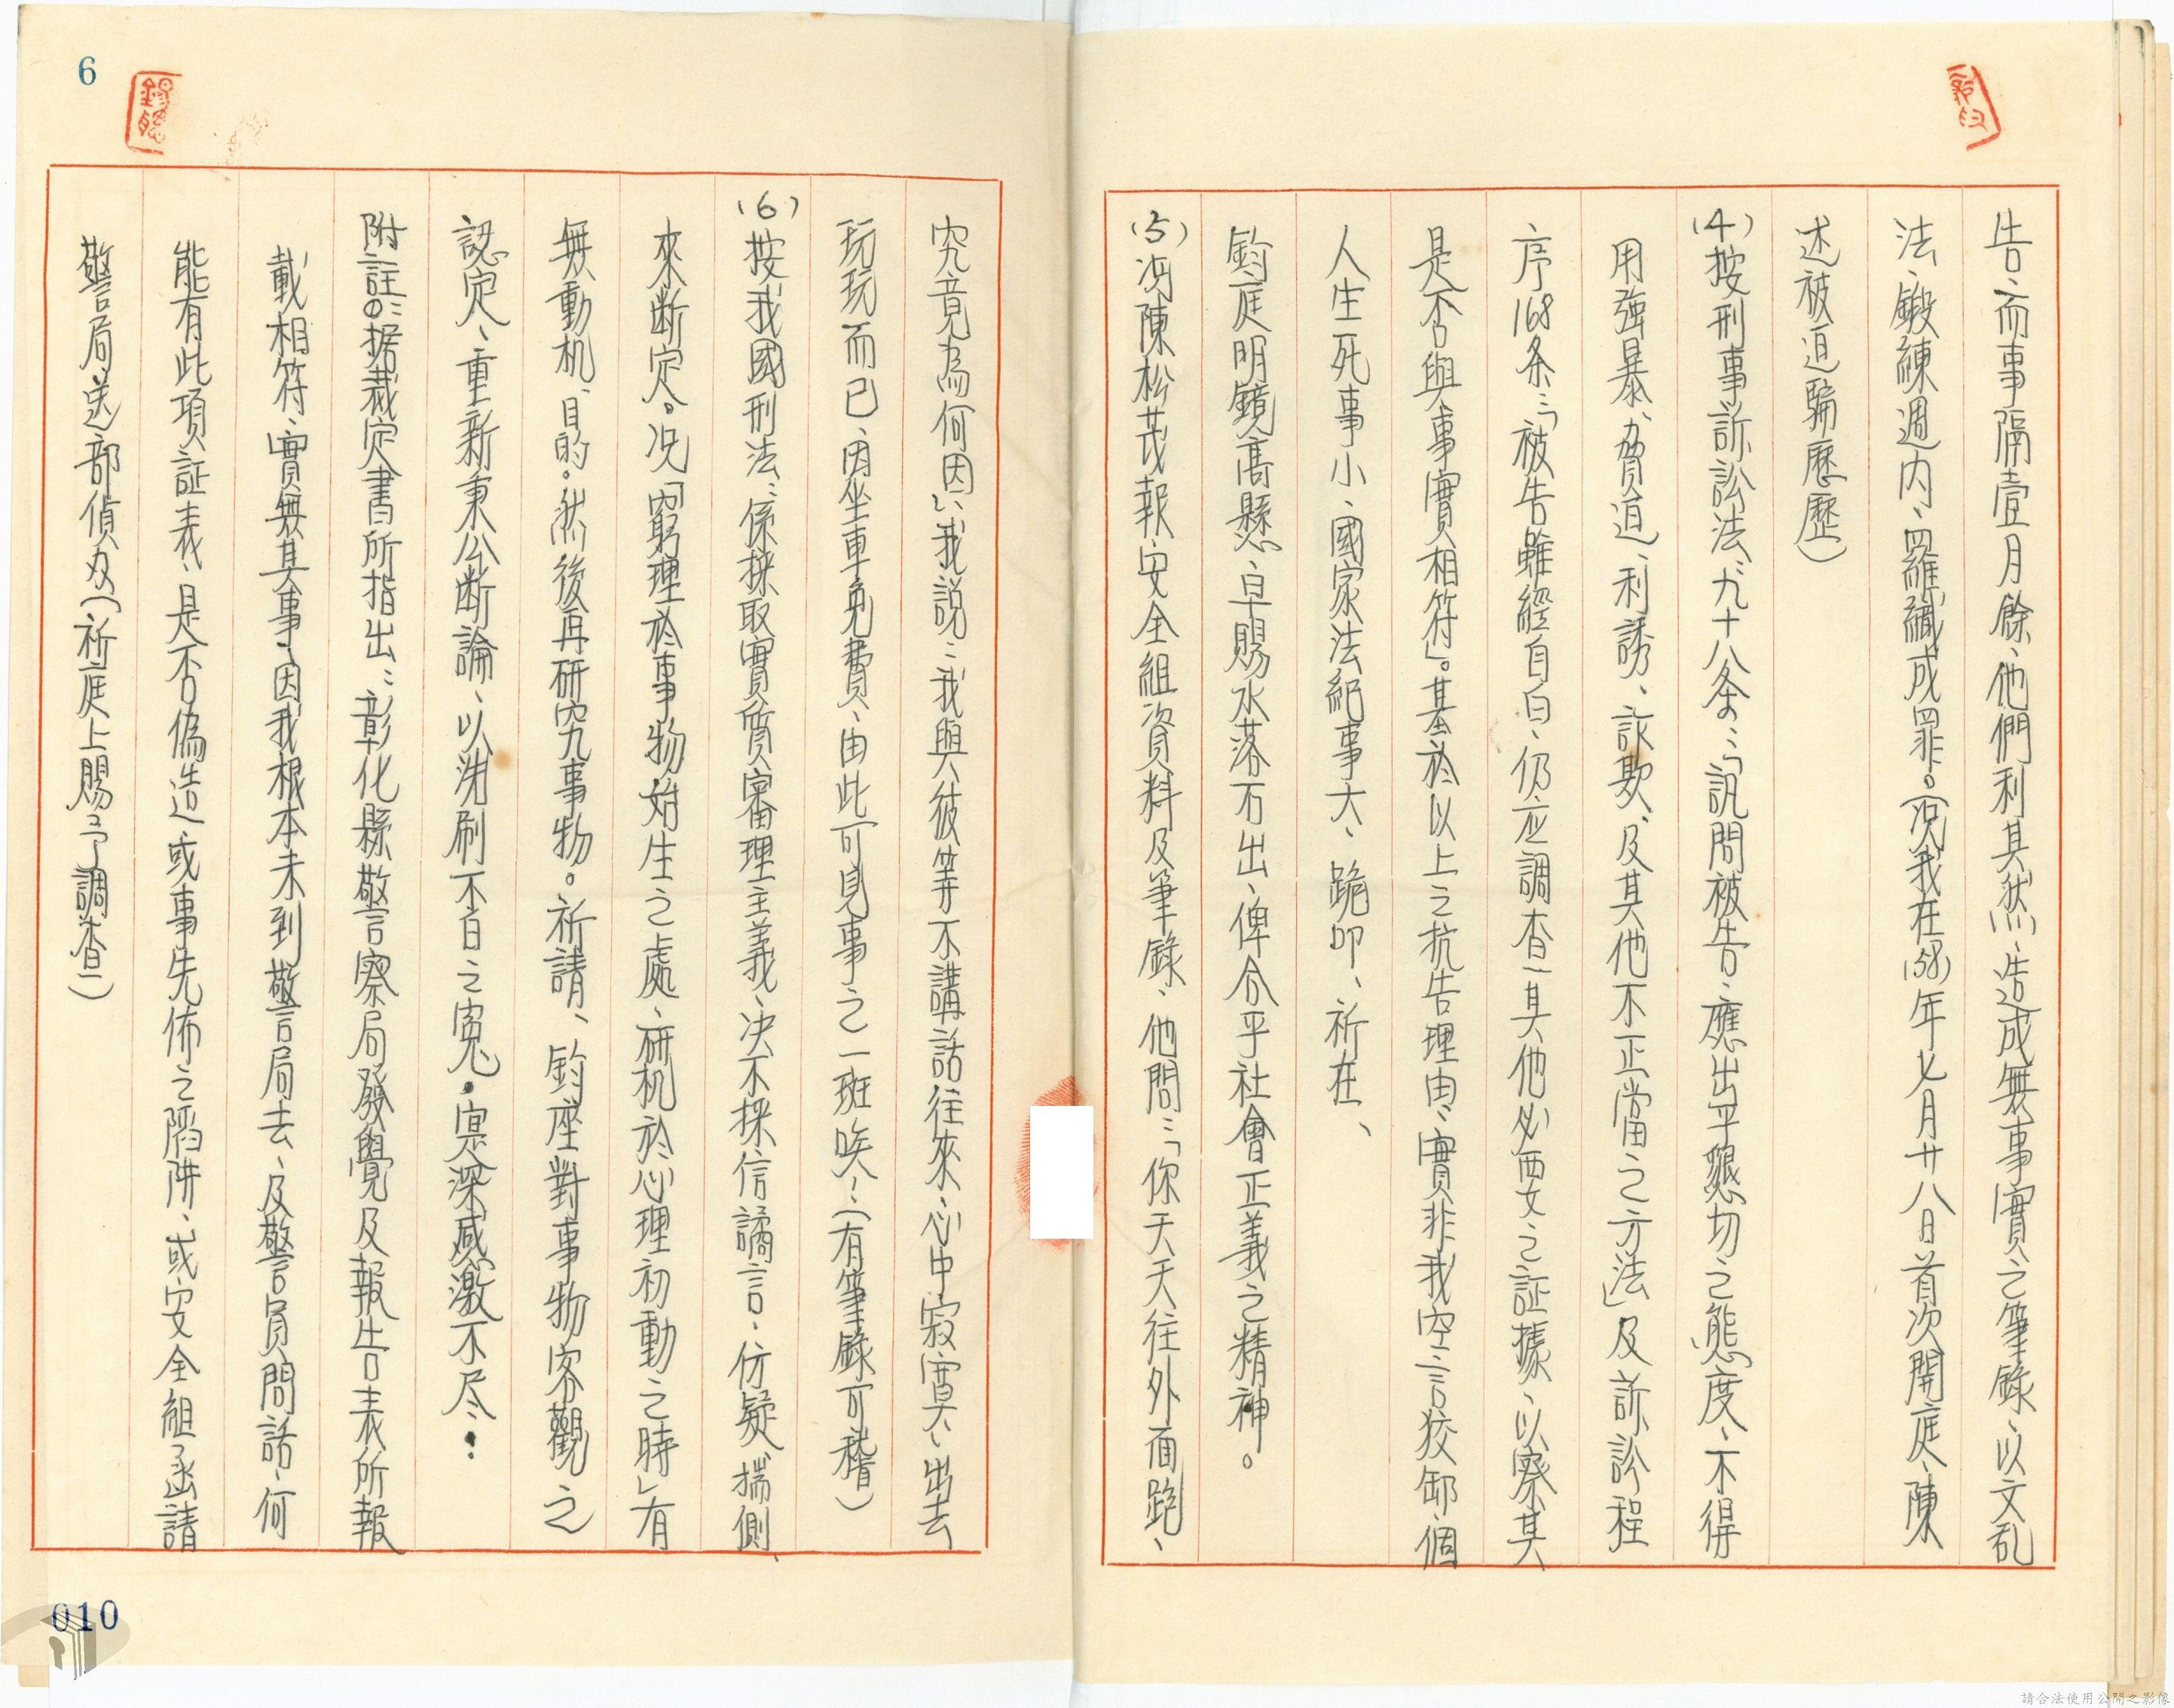 告、而事隔壹月餘、他們利其然、造成無事實之筆錄、以文乱
法、鍛練週内、羅織成罪。（況我在(58)年七月廿八日首次開庭、陳
述被迫騙歷歷）
(4)按刑事訴訟法、九十八条：「訊問被告、應出平懇切之態度、不得
用強暴、脅迫、利誘、詐欺、及其他不正當之方法」及訴訟程
序168条：「被告雖經自白、仍应調查其他必要之証據、以察其
是否與事實相符」。基於以上之抗告理由、實非我空言狡卸、個
人生死事小、國家法紀事大、跪叩、祈在、
鈞庭明鏡高懸、早賜水落石出、俾合乎社會正義之精神。
(5)陳松茂報安全組資料及筆錄、他問：「你天天往外面跑、
究竟為何因」、我説：我與彼等不講話往來、心中寂寞、出去
玩玩而已、因坐車免費、由此可見事之一斑唉！（有筆錄可稽）
(6)按我國刑法：係採取實質審理主義、决不採信譎言、仿疑、揣側、
來断定。况「窮理於事物始生之處、研机於心理初動之時」有
無動机、目的。然後再研究事物。祈請、鈞座對事物客觀之
認定、重新秉公断論、以洗刷不白之寃。寔深感激不尽：
附註：據裁定書所指出：彰化縣警察局發覺及報告表所報
載相符、實無其事、因我根本未到警局去、及警員問話、何
能有此項証表、是否偽造、或事先佈之陷阱、或安全組函請
警局送部偵办（祈庭上賜予調查）
6
010
請合法使用公開之影像